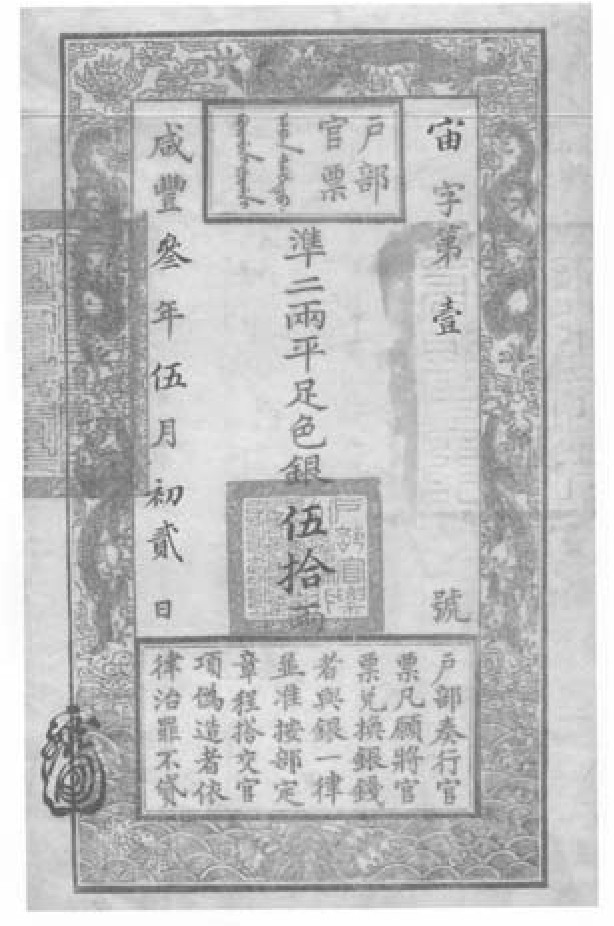 宙字第壹號
戶部
官票
準二兩平足色銀伍拾兩
咸豐叄年伍月初貳日
戶部奏行官
票凡願將官
票兌換銀錢
者與銀一律
並准按部定
章程搭交官
項偽造者依
律治罪不貸